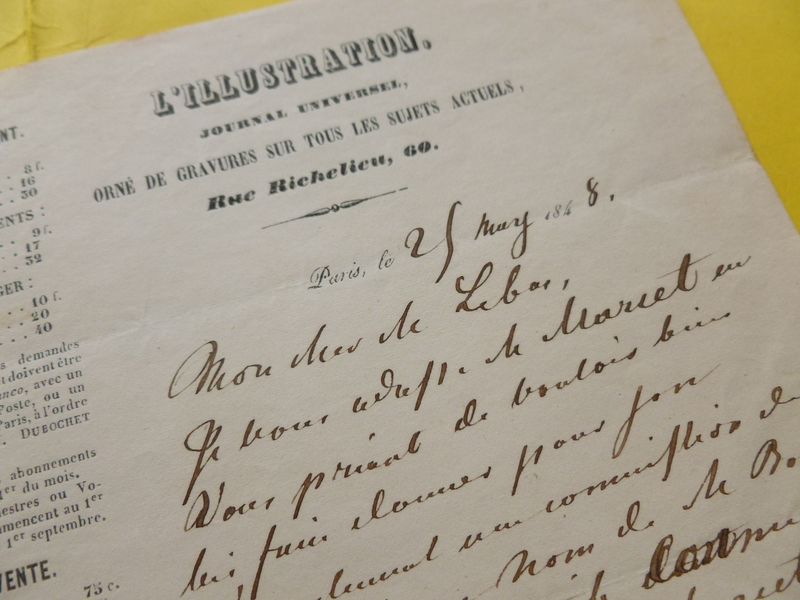 L'ILLUSTRATION,
JOURNAL UNIVERSEL,
ORNÉ DE GRAVURES SUR TOUS LES SUJETS ACTUELS,
Rue Richelieu, 60.
Paris, le 25 may 1848.
Mon cher M. Lebas,
Je vous adresse M. Marset en
vous priant de vouloir bien
lui faire donner pour son
une commission de
nom de M. Bo
NT.
8 f.
16
30
ENTS :
9 f.
17
32
GER :
10 f.
20
40
s demandes
t doivent être
nco, avec un
Poste, ou un
Paris, à l'ordre
. DUBOCHET
abonnements
1er du mois.
mestres ou Vo-
mmencent au 1er
1er septembre.
VENTE.
75 c.